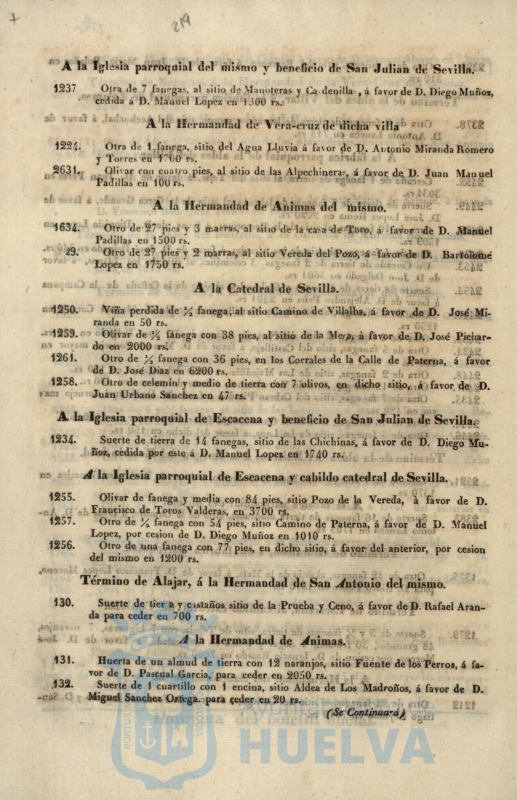 219
A la Iglesia parroquial del mismo y beneficio de San Julian de Sevilla.
1237 Otra de 7 fanegas, al sitio de Manoteras y Cadenilla, á favor de D. Diego Muñoz,
cedida á D. Manuel Lopez en 1.300 rs.
A la Hermandad de Vera-cruz de dicha villa
1224. Otra de 1 fanega, sitio del Agua Lluvia á favor de D. Antonio Miranda Romero
y Torres en 1700 rs.
2631. Olivar con cuatro pies, al sitio de las Alpechineras, á favor de D. Juan Manuel
Padillas en 100 rs.
A la Hermandad de Animas del mismo.
1634. Otro de 27 pies y 3 marras, al sitio de la casa de Toro, á favor de D. Manuel
Padillas en 1500 rs.
29. Otro de 27 pies y 2 marras, al sitio Vereda del Pozo, á favor de D. Bartolomé
Lopez en 1750 rs.
A la Catedral de Sevilla.
1250. Viña perdida de ½ fanega, al sitio Camino de Villalba, á favor de D. José Mi-
randa en 50 rs.
1259. Olivar de ½ fanega con 38 pies, al sitio de la Mera, á favor de D. José Pichar-
do en 2000 rs.
1261. Otro de ½ fanega con 36 pies, en los Corrales de la Calle de Paterna, á favor
de D. José Diaz en 6200 rs.
1258. Otro de celemin y medio de tierra con 7 olivos, en dicho sitio, á favor de D.
Juan Urbano Sanchez en 47 rs.
A la Iglesia parroquial de Escacena y beneficio de San Julian de Sevilla.
1234. Suerte de tierra de 14 fanegas, sitio de las Chichinas, á favor de D. Diego Mu-
ñoz, cedida por este á D. Manuel Lopez en 1740 rs.
A la Iglesia parroquial de Escacena y cabildo catedral de Sevilla.
1255. Olivar de fanega y media con 84 pies, sitio Pozo de la Vereda, á favor de D.
Francisco de Toros Valderas, en 3700 rs.
1257. Otro de ¼ fanega con 54 pies, sitio Camino de Paterna, á favor de D. Manuel
Lopez, por cesion de D. Diego Muñoz en 1010 rs.
1256. Otro de una fanega con 77 pies, en dicho sitio, á favor del anterior, por cesion
del mismo en 1200 rs.
Término de Alajar, á la Hermandad de San Antonio del mismo.
130. Suerte de tierra y castaños sitio de la Prueba y Ceno, á favor de D. Rafael Aran-
da para ceder en 700 rs.
A la Hermandad de Animas.
131. Huerta de un almud de tierra con 12 naranjos, sitio Fuente de los Perros, á fa-
vor de D. Pascual Garcia, para ceder en 2050 rs.
132. Suerte de 1 cuartillo con 1 encina, sitio Aldea de Los Madroños, á favor de D.
Miguel Sanchez Ortega, para ceder en 20 rs.
(Se Continuará)
HUELVA